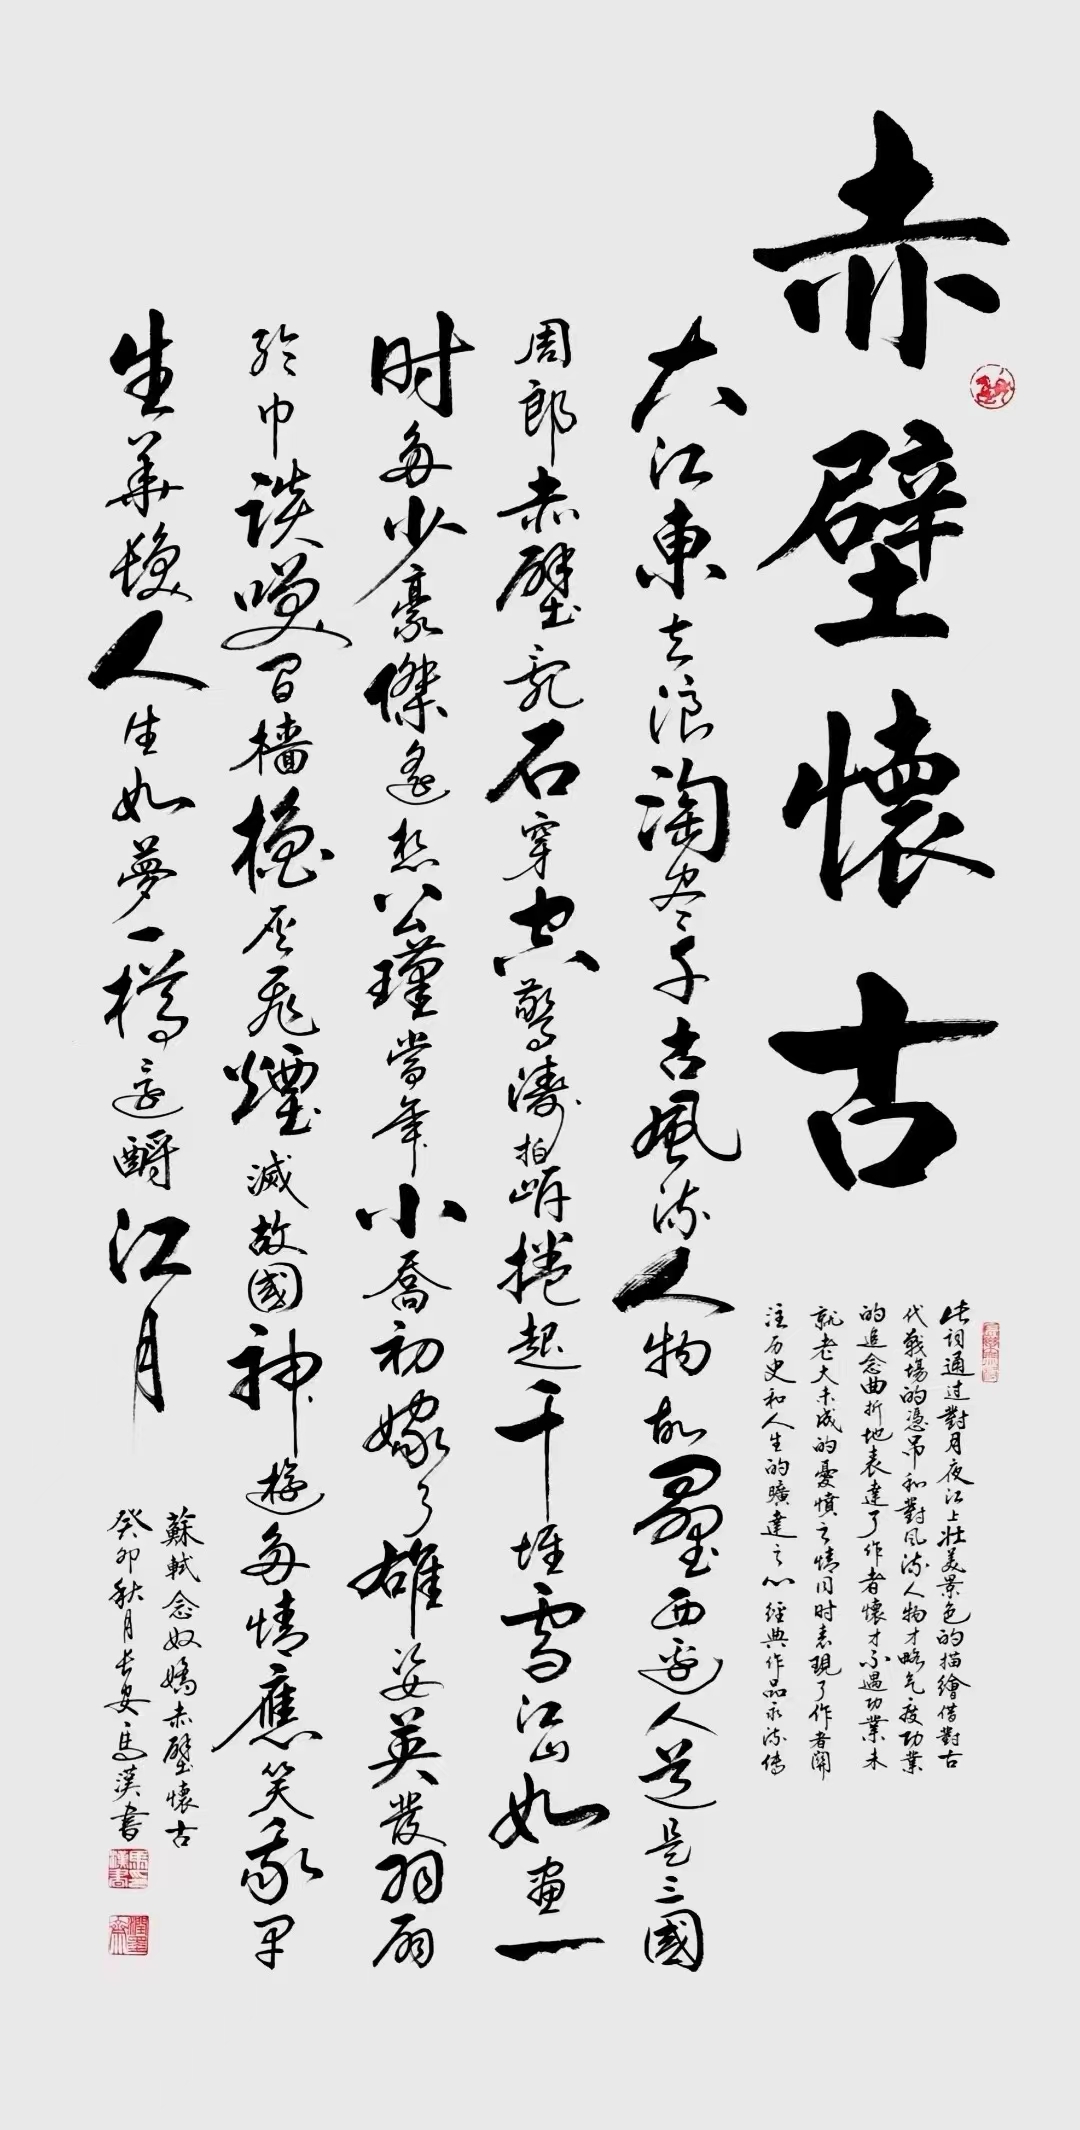 赤壁懷古
此词通过對月夜江上壮美景色的描繪借對古
代戰場的憑吊和對风流人物才略气度功業
的追念曲折地表達了作者懷才不遇功業未
就老大未成的憂憤之情同时表現了作者關
注历史和人生的曠達之心經典作品永流傳
大江東去浪淘尽千古風流人物故壘西邊人道是三國
周郎赤壁乱石穿空驚濤拍岸捲起千堆雪江山如畫一
时多少豪傑遙想公瑾當年小喬初嫁了雄姿英發羽扇
綸巾談笑間檣櫓灰飛煙滅故國神遊多情應笑我早
生華髮人生如夢一樽還酹江月
蘇軾念奴嬌赤壁懷古
癸卯秋月長安馬漢書